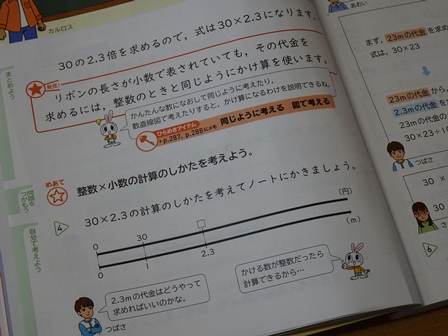 カルロス
30の2.3倍を求めるので，式は30×2.3になります。
発見
リボンの長さが小数で表されていても，その代金を
求めるには，整数のときと同じようにかけ算を使います。
かんたんな数になおして同じように考えたり，
数直線図で考えたりすると，かけ算になるわけを説明できるね。
ひらめきアイテム
p.287，p.288
同じように考える 図で考える
まとめよう
めあて
整数×小数の計算のしかたを考えよう。
問題を
つかもう
4
30×2.3の計算のしかたを考えてノートにかきましょう。
自分で考えよう
0 30 □ (円)
0 1 2.3 (m)
2.3mの代金はどうやって
求めればいいのかな。
つばさ
かける数が整数だったら
計算できるから…
あおい
まず，23mの代金を求め
式は，30×23
23mの代金から，
2.3mの代金
23mの代金の
30×23÷1
つばさ
30×
30×
6